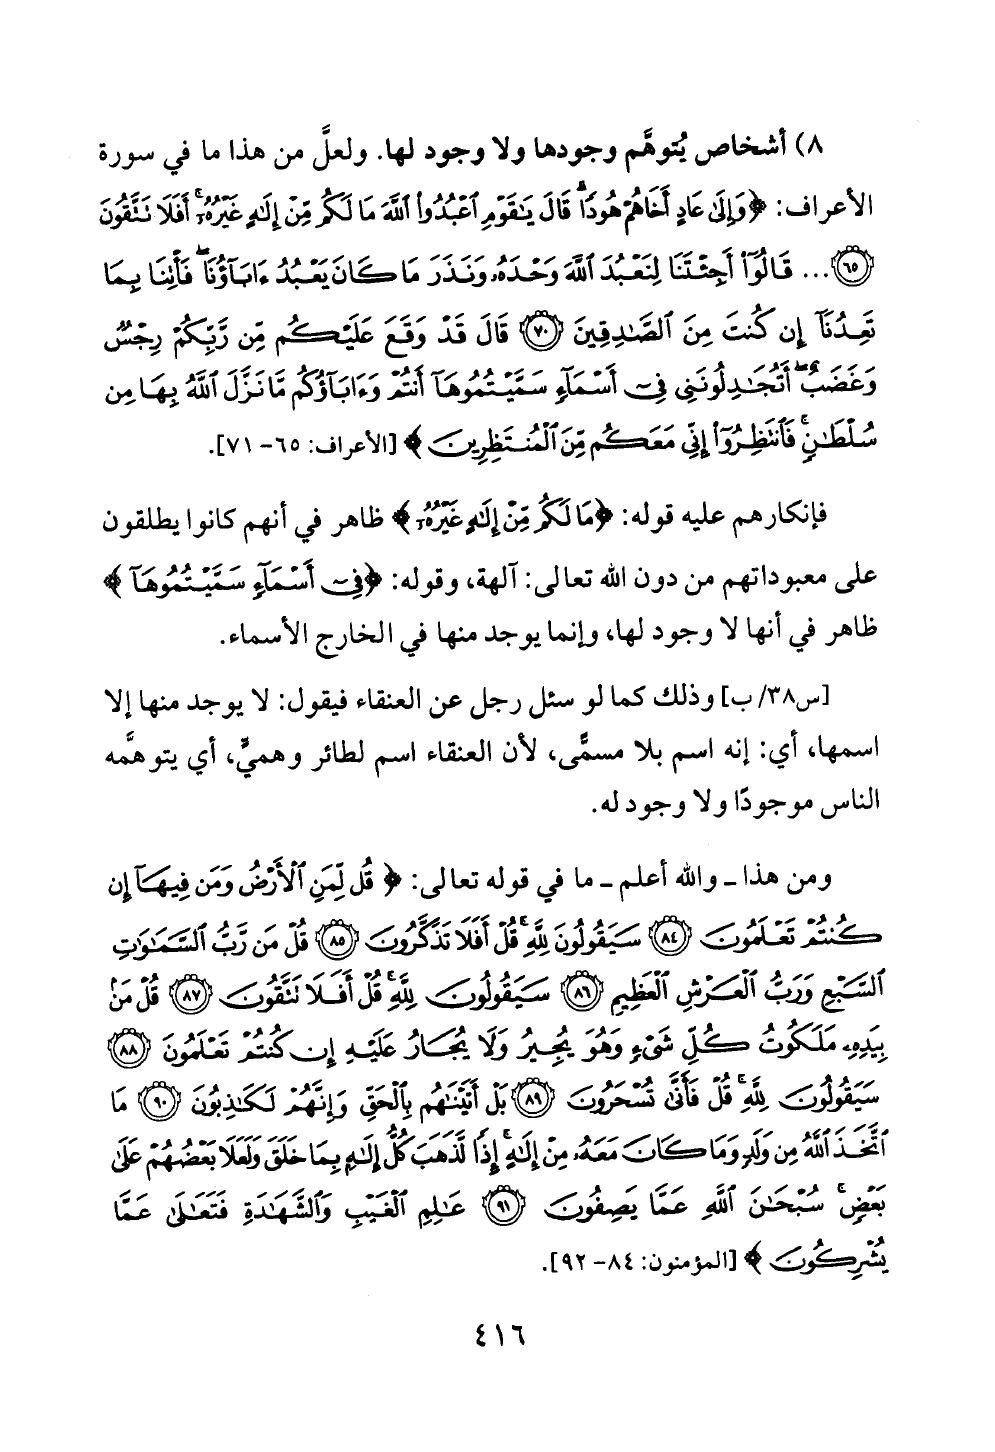 ٨) أشخاص يُتوهَّم وجودها ولا وجود لها. ولعلَّ من هذا ما في سورة
الأعراف: ﴿وَإِلَىٰ عَادٍ أَخَاهُمْ هُودًا ۗ قَالَ يَٰقَوْمِ ٱعْبُدُوا۟ ٱللَّهَ مَا لَكُم مِّنْ إِلَٰهٍ غَيْرُهُۥٓ ۚ أَفَلَا تَتَّقُونَ
(٦٥) ... قَالُوٓا۟ أَجِئْتَنَا لِنَعْبُدَ ٱللَّهَ وَحْدَهُۥ وَنَذَرَ مَا كَانَ يَعْبُدُ ءَابَآؤُنَا ۖ فَأْتِنَا بِمَا
تَعِدُنَآ إِن كُنتَ مِنَ ٱلصَّٰدِقِينَ (٧٠) قَالَ قَدْ وَقَعَ عَلَيْكُم مِّن رَّبِّكُمْ رِجْسٌ
وَغَضَبٌ ۖ أَتُجَٰدِلُونَنِى فِىٓ أَسْمَآءٍ سَمَّيْتُمُوهَآ أَنتُمْ وَءَابَآؤُكُم مَّا نَزَّلَ ٱللَّهُ بِهَا مِن
سُلْطَٰنٍ ۚ فَٱنتَظِرُوٓا۟ إِنِّى مَعَكُم مِّنَ ٱلْمُنتَظِرِينَ﴾ [الأعراف: ٦٥- ٧١].
فإنكارهم عليه قوله: ﴿مَا لَكُم مِّنْ إِلَٰهٍ غَيْرُهُۥٓ﴾ ظاهر في أنهم كانوا يطلقون
على معبوداتهم من دون الله تعالى: آلهة، وقوله: ﴿فِىٓ أَسْمَآءٍ سَمَّيْتُمُوهَآ﴾
ظاهر في أنها لا وجود لها، وإنما يوجد منها في الخارج الأسماء.
[س٣٨/ ب] وذلك كما لو سئل رجل عن العنقاء فيقول: لا يوجد منها إلا
اسمها، أي: إنه اسم بلا مسمًّى، لأن العنقاء اسم لطائر وهميٍّ، أي يتوهمَّه
الناس موجودًا ولا وجود له.
ومن هذا ـ والله أعلم ـ ما في قوله تعالى: ﴿قُل لِّمَنِ ٱلْأَرْضُ وَمَن فِيهَآ إِن
كُنتُمْ تَعْلَمُونَ (٨٤) سَيَقُولُونَ لِلَّهِ ۚ قُلْ أَفَلَا تَذَكَّرُونَ (٨٥) قُلْ مَن رَّبُّ ٱلسَّمَٰوَٰتِ
ٱلسَّبْعِ وَرَبُّ ٱلْعَرْشِ ٱلْعَظِيمِ (٨٦) سَيَقُولُونَ لِلَّهِ ۚ قُلْ أَفَلَا تَتَّقُونَ (٨٧) قُلْ مَنۢ
بِيَدِهِۦ مَلَكُوتُ كُلِّ شَىْءٍ وَهُوَ يُجِيرُ وَلَا يُجَارُ عَلَيْهِ إِن كُنتُمْ تَعْلَمُونَ (٨٨)
سَيَقُولُونَ لِلَّهِ ۚ قُلْ فَأَنَّىٰ تُسْحَرُونَ (٨٩) بَلْ أَتَيْنَٰهُم بِٱلْحَقِّ وَإِنَّهُمْ لَكَٰذِبُونَ (٩٠) مَا
ٱتَّخَذَ ٱللَّهُ مِن وَلَدٍ وَمَا كَانَ مَعَهُۥ مِنْ إِلَٰهٍ ۚ إِذًا لَّذَهَبَ كُلُّ إِلَٰهٍۭ بِمَا خَلَقَ وَلَعَلَا بَعْضُهُمْ عَلَىٰ
بَعْضٍ ۚ سُبْحَٰنَ ٱللَّهِ عَمَّا يَصِفُونَ (٩١) عَٰلِمِ ٱلْغَيْبِ وَٱلشَّهَٰدَةِ فَتَعَٰلَىٰ عَمَّا
يُشْرِكُونَ﴾ [المؤمنون: ٨٤- ٩٢].
٤١٦